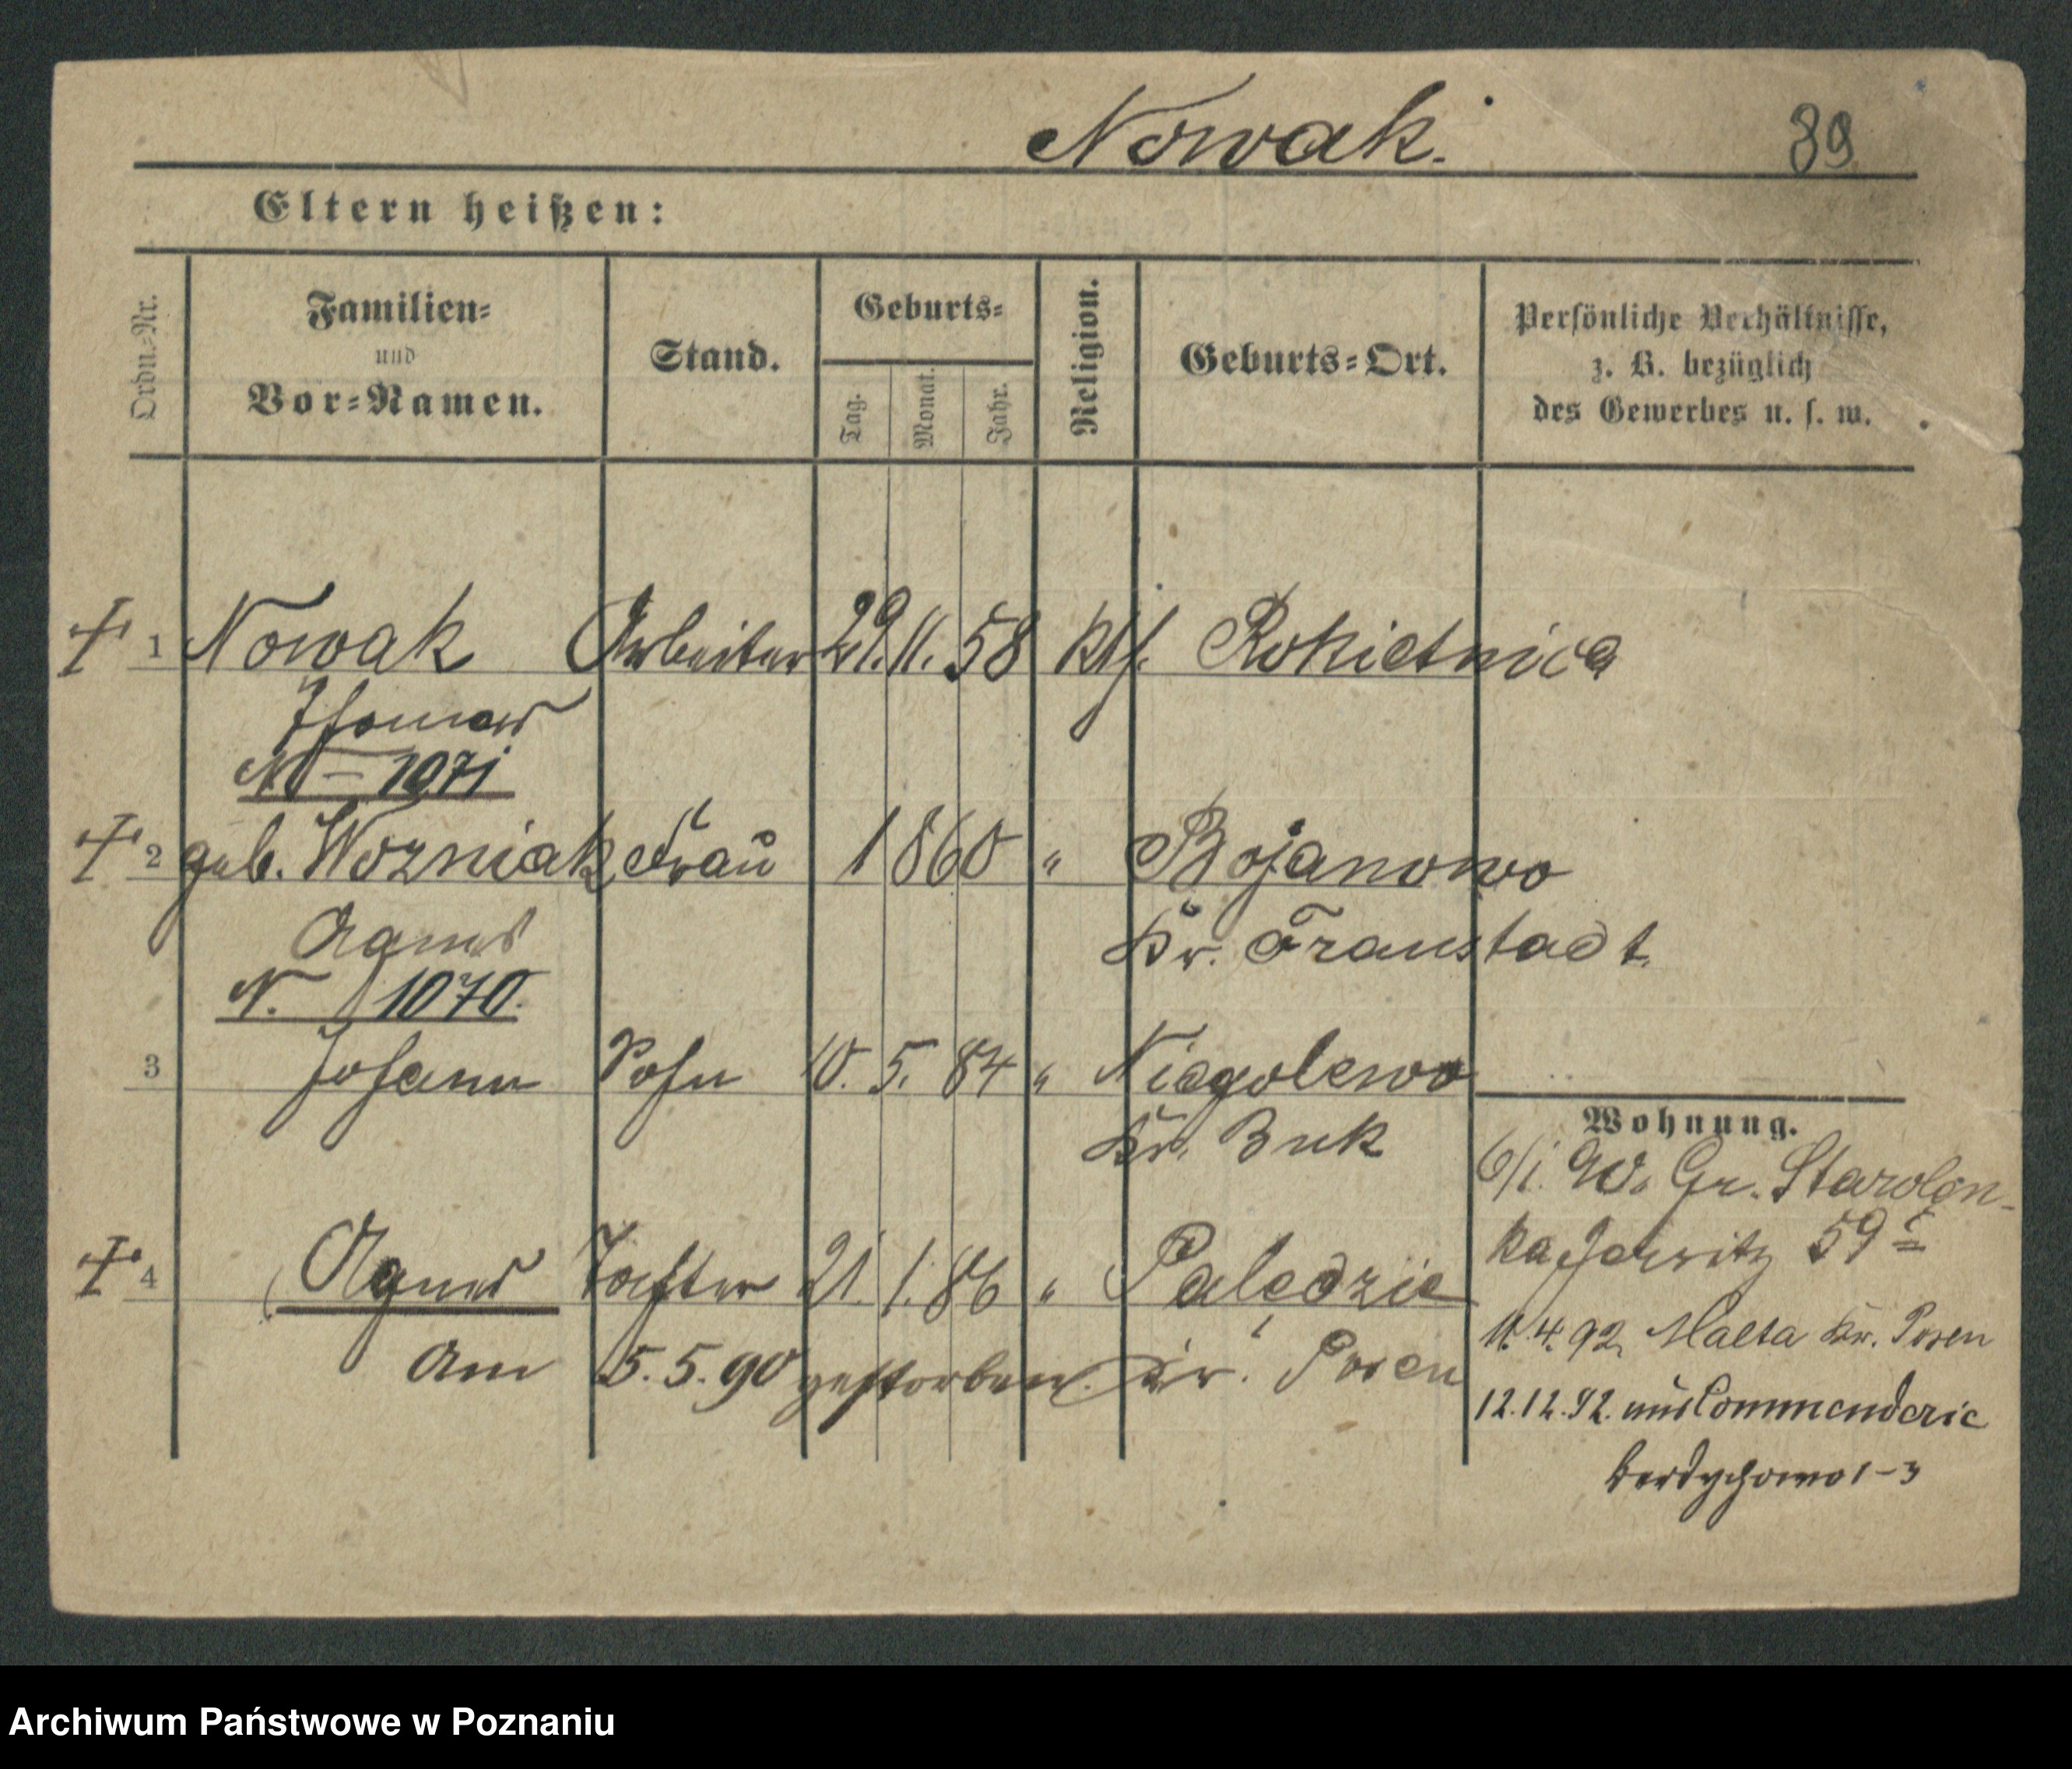 Nowak. 89
Eltern heißen:
Ordn.-Nr. Familien- und Vor-Namen. Stand. Geburts- Tag. Monat. Jahr. Religion. Geburts-Ort. Persönliche Verhältnisse, z. B. bezüglich des Gewerbes u. s. w.
1 Nowak Arbeiter 29. 11. 58 kth. Rokietnica
Thomas
N — 1071
2 geb. Wozniak Frau 1860 " Bojanowo
Agnes Kr. Fraustadt
N. 1070.
3 Johann Sohn 10. 5. 84 " Niegolewo
Kr. Buk
Wohnung.
6/1. 90. Gr. Starolen-
ka Jersitz 59
4 Agnes Tochter 21. 1. 86 " Paledzie
11. 4. 92 Malta Kr. Posen
am 5. 5. 90 gestorben. Kr. Posen
12. 12. 92. aus Commenderie
Berdychowo 1-3
Archiwum Państwowe w Poznaniu